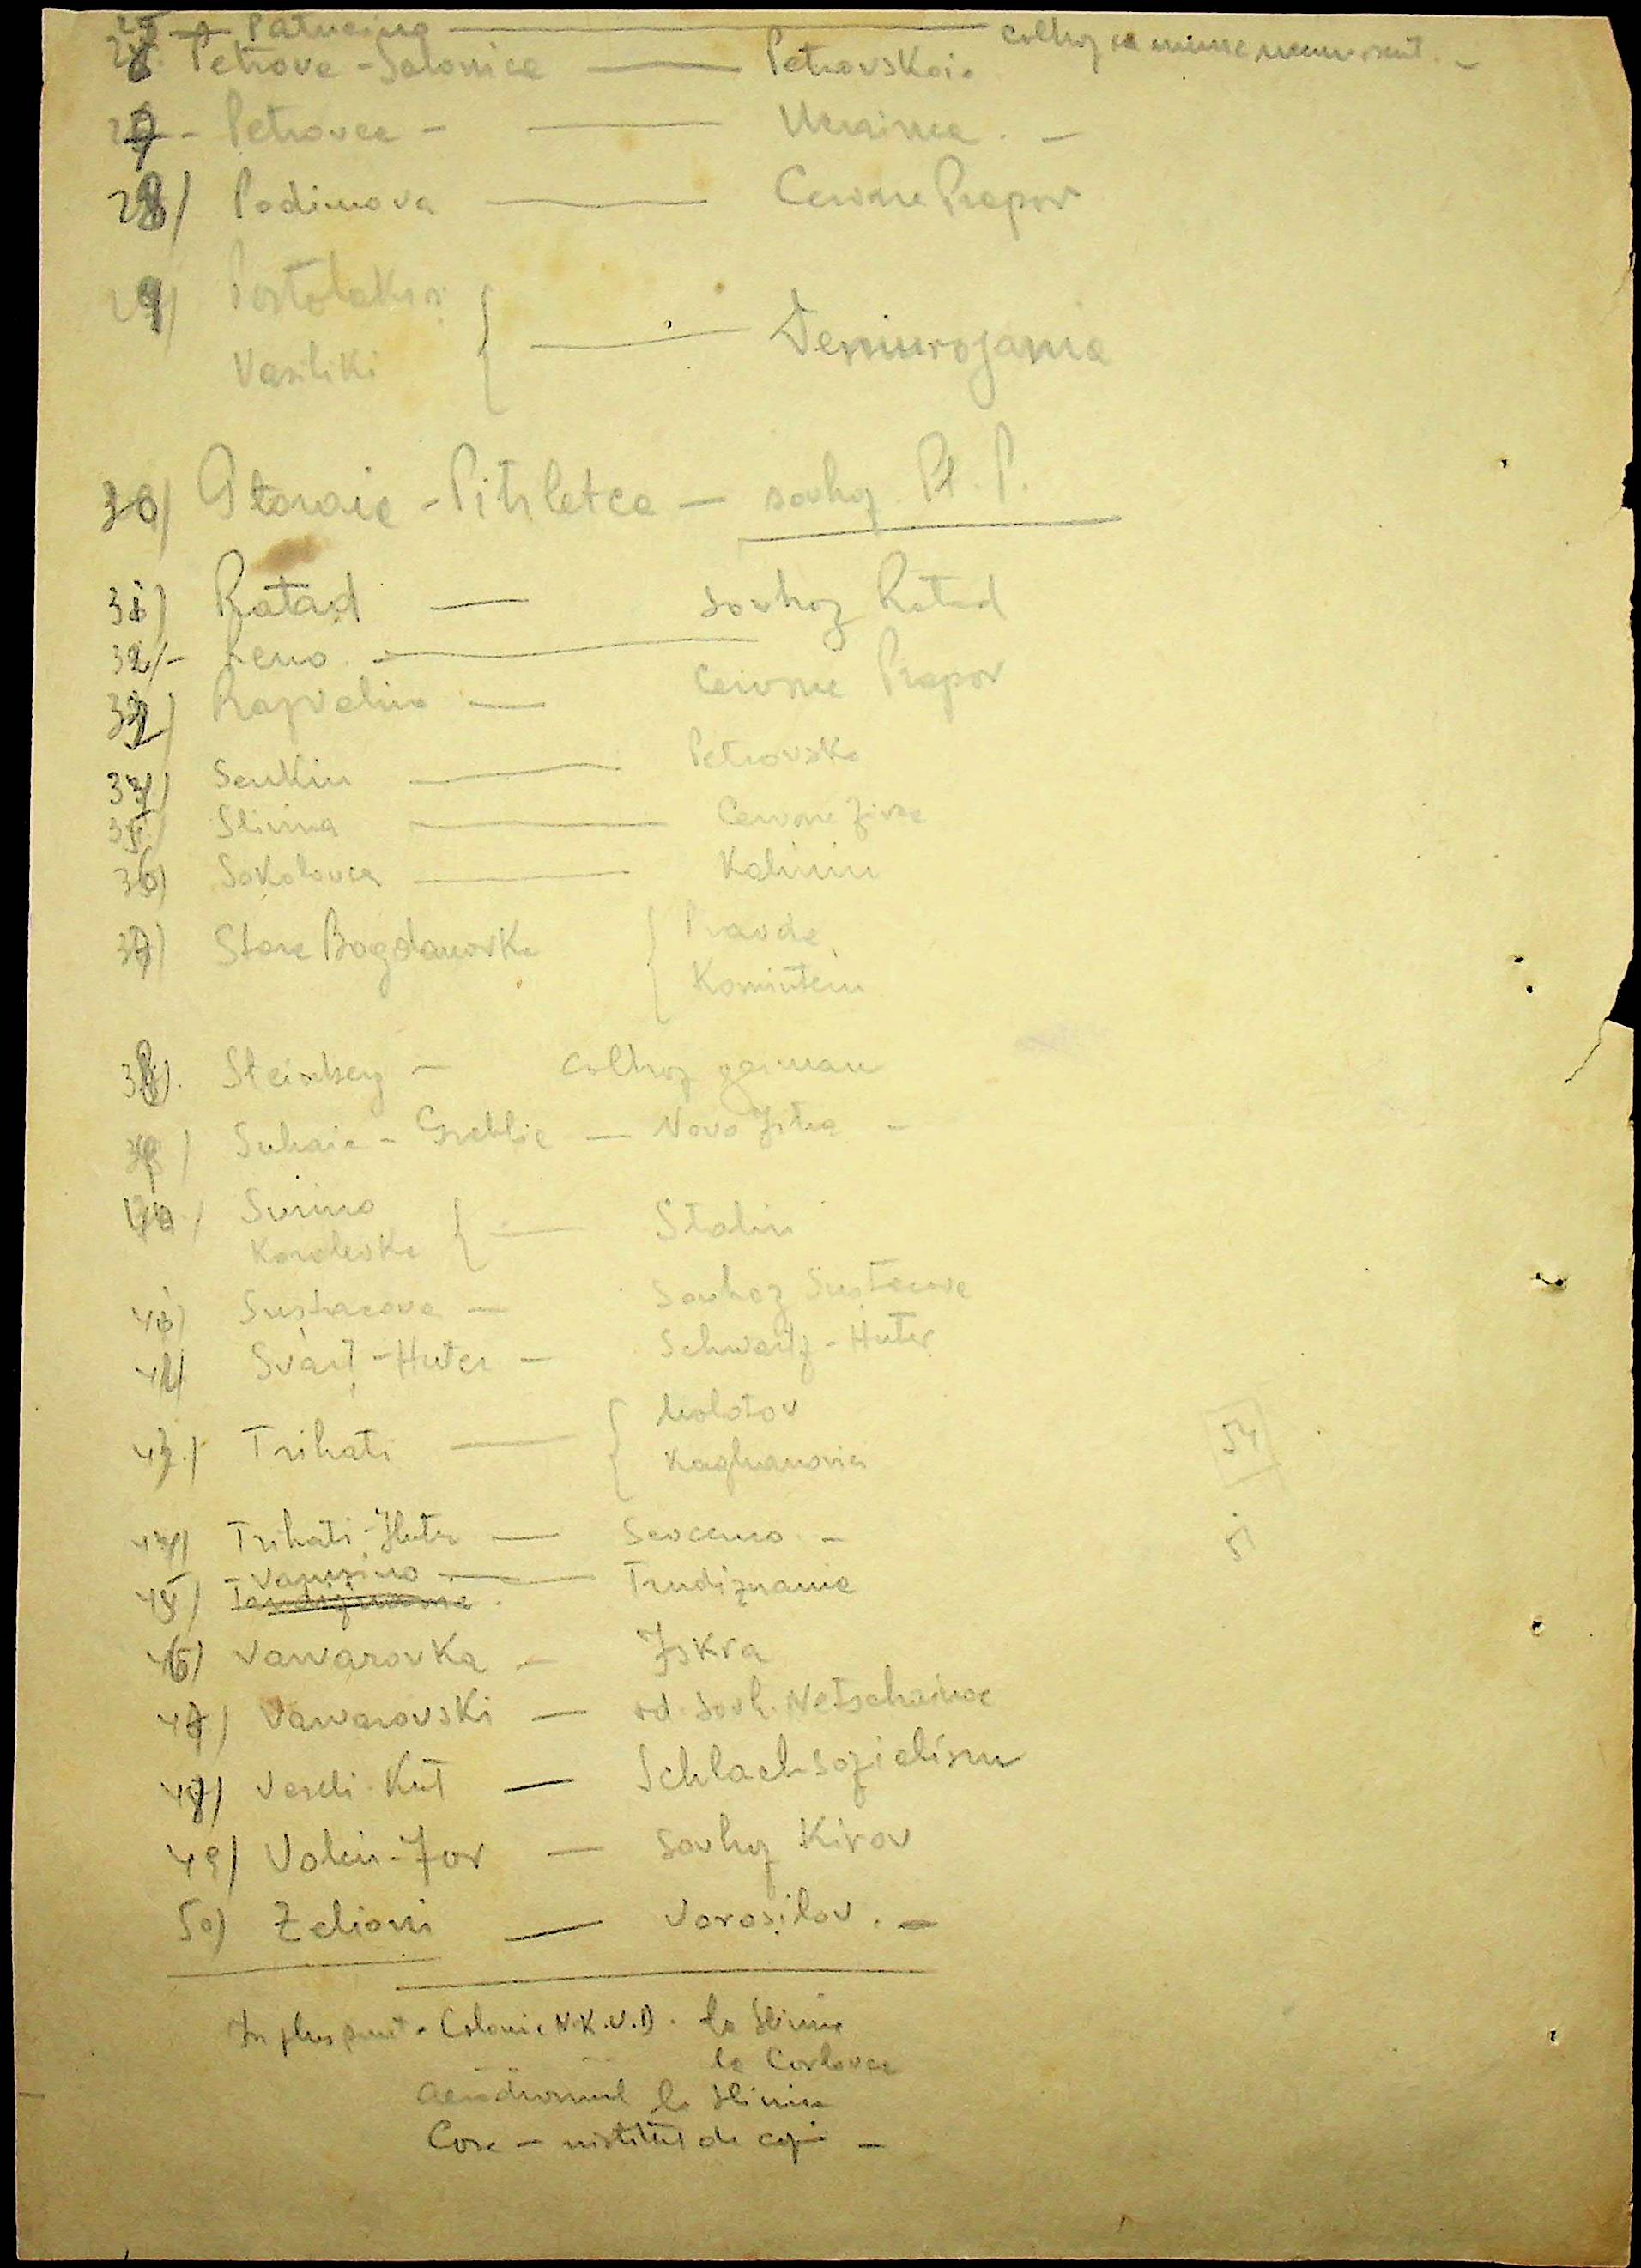 25 - Patucino — colhoz
26. Petrova-Solonica — Petrovskoi.
27 - Petrovca - — Ucrainca. -
28) Podimova — Cervone Prapor
29) Postolakioi
Vasiliki { — Demiurojania
30) Ptoraie - Pitzletca — sovhoz Pt. P.
31) Ratad — sovhoz Ratad
32/- Reno. —
33) Razvelino — Cervone Prapor
34) Senkiu — Petrovska
35) Slivina — Cervone Zirca
36) Sokolovca — Kalinin
37) Stara Bogdanovka { Pravda
Komintern
38). Steinberg — Colhoz german
39/ Suhaia - Greblie — Novo Jitia -
40./ Surino
Korolevka { — Stalin
41) Sustacova — Sovhoz Sustacova
42) Svarț-Huter — Schwartz-Huter
43./ Trihati — { Molotov
Kaghanovici
54
44) Trihati-Huter — Sevcenco. -
51
- Variușino. —
45) Trudiznamea. Trudiznamie
46) Varvarovka — Iskra
47) Varvarovski — od. Sovh. Netschainoe
48) Veseli-Kut — Schlach Sozielismu
49) Volin-Jor — Sovhoz Kirov
50) Zelioni — Voroșilov. -
In plus sunt - Colonie N.K.V.D. la Slivina
la Corlovca
Aerodromul la Slivina
Core — institut de copii —